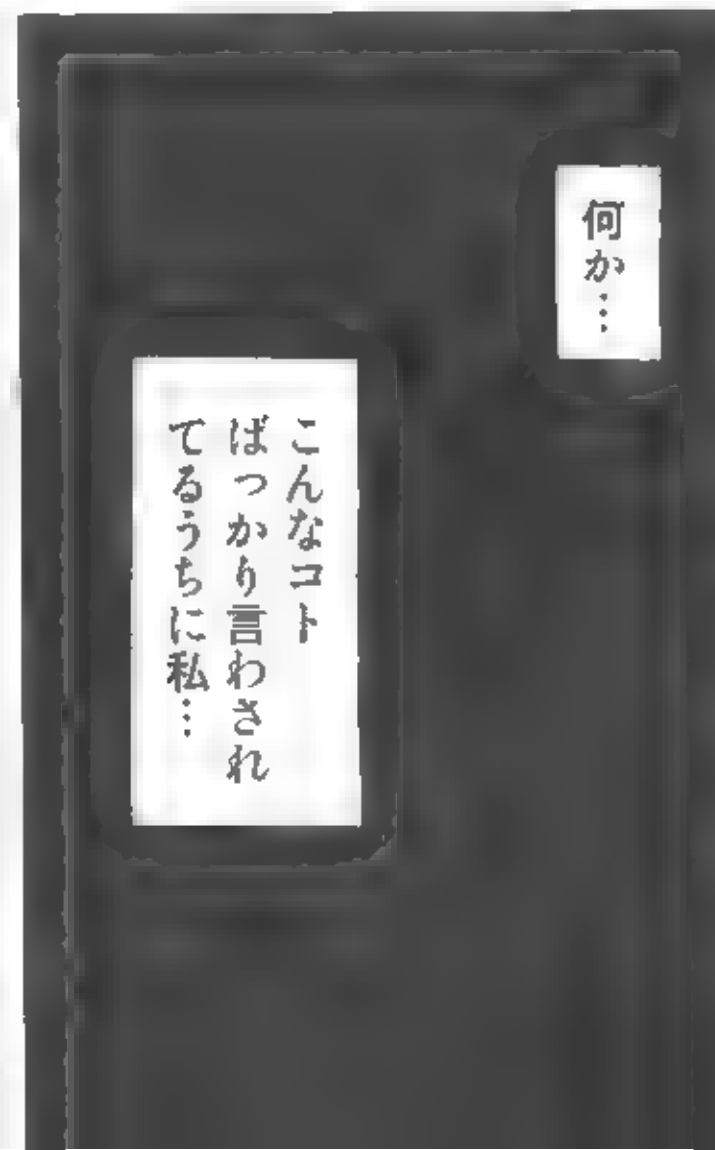 何か…
こんなコト
ばっかり言わされ
てるうちに私…